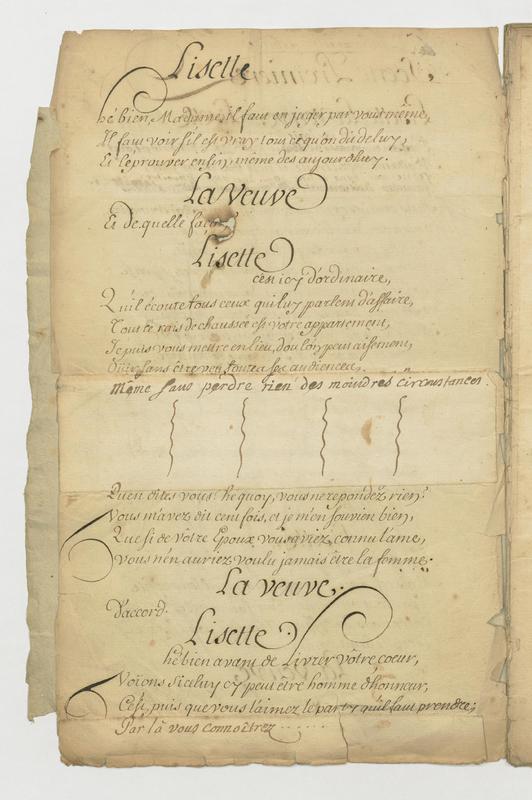 Lisette
hé bien, Madame, il faut en juger par vous même,
Il faut voir s'il est vray tout ce qu'on dit de luy,
Et l'éprouver enfin, même dès aujourdhuy.
La Veuve
Et de quelle façon
Lisette
c'est icy d'ordinaire,
Qu'il écoute tous ceux qui luy parlent d'affaire,
Tout ce rais de chaussée est votre appartement,
Je puis vous mettre en lieu, d'où l'on peut aisement,
Ouir sans être veu toutes ses audiences,
Même sans perdre rien des moindres circonstances.
Qu'en dites vous? hé quoy, vous ne repondez rien?
Vous m'avez dit cent fois, et je m'en souvien bien,
Que si de vôtre Epoux vous aviez connu l'ame,
Vous n'en auriez voulu jamais être la femme.
La veuve.
D'accord.
Lisette.
hé bien avant de Livrer vôtre coeur,
Voions si celuy cy peut être homme d'honneur,
C'est, puis que vous l'aimez le party qu'il faut prendre;
Par là vous connoîtrez ......